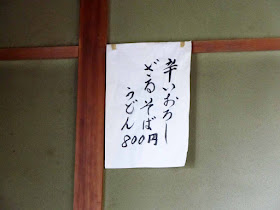 辛いおろし
ざるそば
うどん
800円